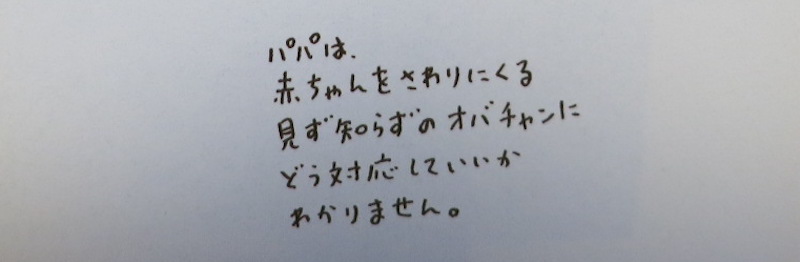 パパは、
赤ちゃんをさわりにくる
見ず知らずのオバチャンに
どう対応していいか
わかりません。